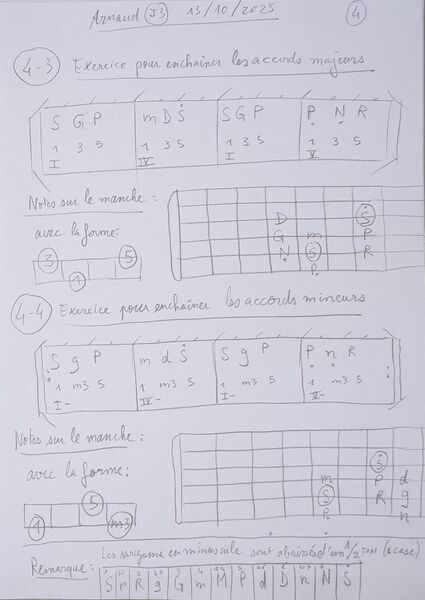 Arnaud J3 13/10/2025 4
4-3 Exercice pour enchaîner les accords majeurs
S G P m D Ṡ S G P P N R
1 3 5 1 3 5 1 3 5 1 3 5
I IV I V
Notes sur le manche :
avec la forme:
3 5
1
D Ṡ
G m P
N S R
P
4-4 Exercice pour enchaîner les accords mineurs
S g P m d Ṡ S g P P n R
1 m3 5 1 m3 5 1 m3 5 1 m3 5
I- IV- I- V-
Notes sur le manche :
avec la forme:
5
1 m3
Ṡ
m P d
S R g
P n
Les sargams en minuscule sont abaissés d'un 1/2 ton (1 case)
Remarque :
S r R g G m M P d D n N Ṡ